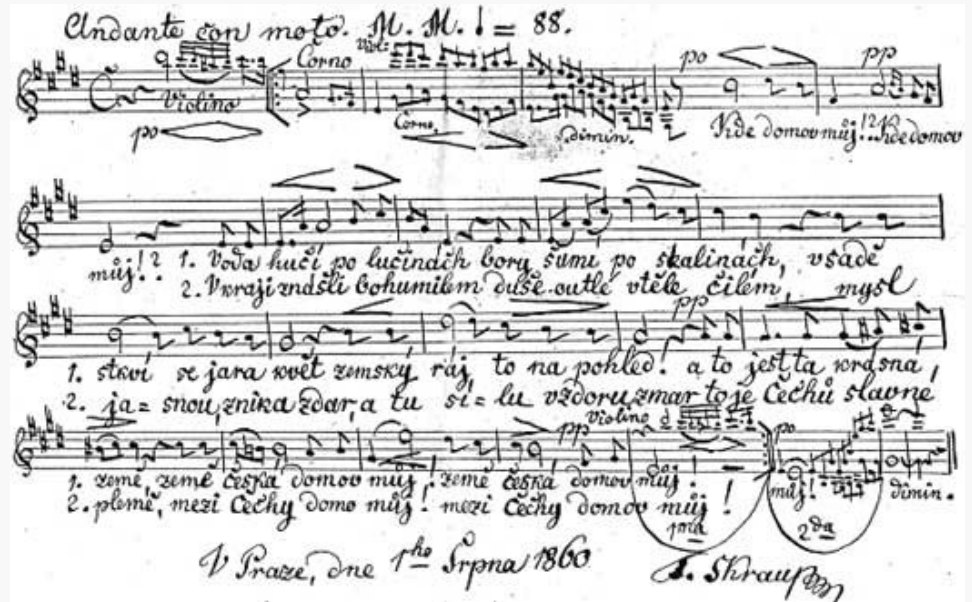 Andante con moto. M. M. ♩ = 88.
Viol: Corno po pp
Violino
po Corno Dimin. Kde domov můj!? Kde domov
můj!? 1. Voda hučí po lučinách bory šumí po skalinách, vsadě
2. V kraji znášli bohumilém duše outlé v těle čilém, mysl
pp
1. stkví se jara květ zemský ráj to na pohled! a to jest ta krásná,
2. ja=snou, znika zdar, a tu sí=lu vzdoru zmar to je Čechů slavné
Violino
pp po
1. země, země česká domov můj! země česká domov můj! můj! dimin.
2. plemě, mezi Čechy domo můj! mezi Čechy domov můj!
1ma 2da
V Praze, dne 1ho Srpna 1860 F. Skraup